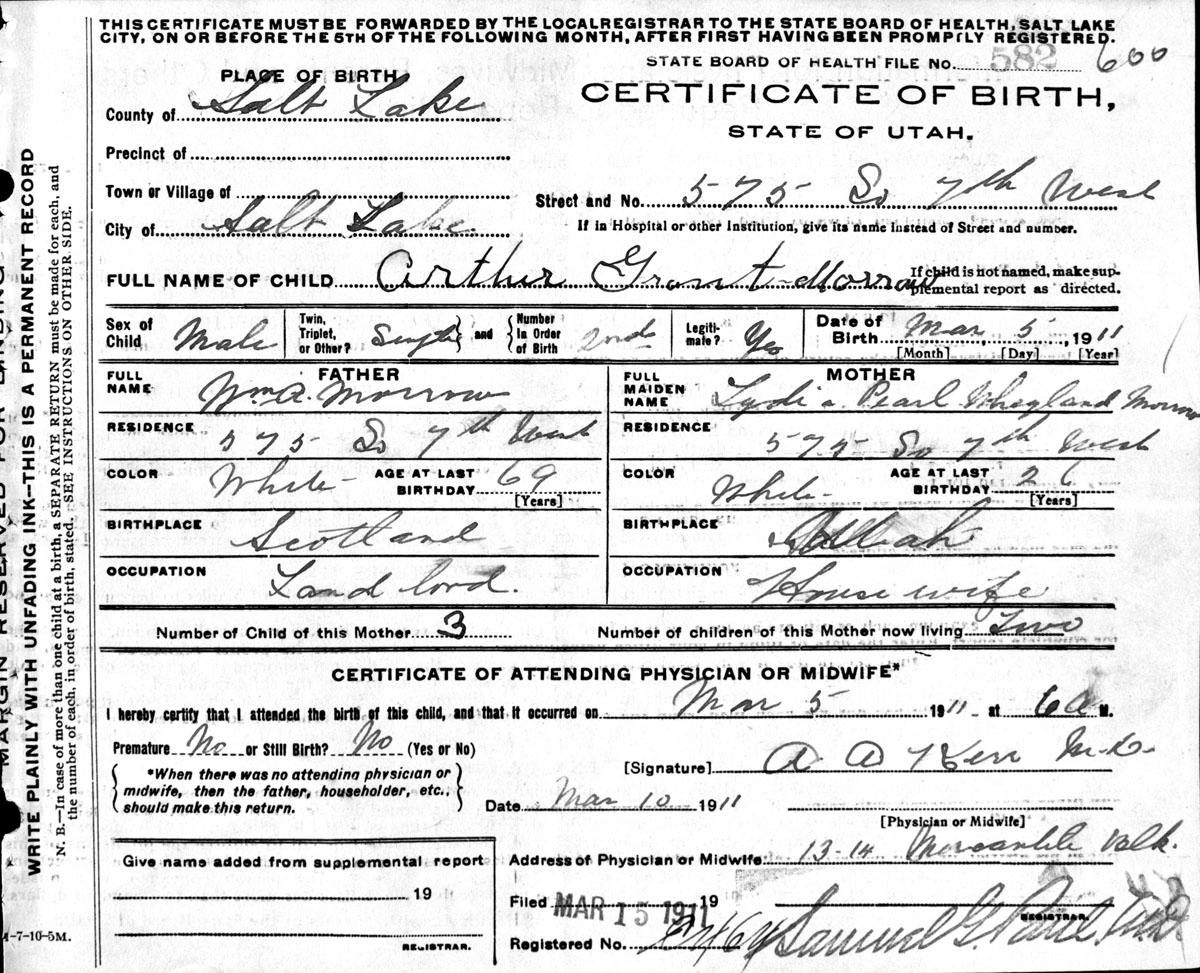 THIS CERTIFICATE MUST BE FORWARDED BY THE LOCAL REGISTRAR TO THE STATE BOARD OF HEALTH, SALT LAKE
CITY, ON OR BEFORE THE 5TH OF THE FOLLOWING MONTH, AFTER FIRST HAVING BEEN PROMPTLY REGISTERED.
STATE BOARD OF HEALTH FILE No. 582 600
PLACE OF BIRTH
CERTIFICATE OF BIRTH,
STATE OF UTAH.
County of Salt Lake
Precinct of
Town or Village of
Street and No. 575 So 7th West
City of Salt Lake
If in Hospital or other Institution, give its name instead of Street and number.
FULL NAME OF CHILD Arther Grant Morrow
If child is not named, make sup-
plemental report as directed.
Sex of Child Male Twin, Triplet, or Other? Single and Number In Order of Birth 2nd Legiti-mate? Yes Date of Birth Mar 5, 1911
[Month] [Day] [Year]
FATHER MOTHER
FULL NAME Wm A. Morrow FULL MAIDEN NAME Lydia Pearl Morrow
RESIDENCE 575 So 7th West RESIDENCE 575 So 7th West
COLOR White AGE AT LAST BIRTHDAY 69 [Years] COLOR White AGE AT LAST BIRTHDAY 26 [Years]
BIRTHPLACE Scotland BIRTHPLACE
OCCUPATION Land lord. OCCUPATION House wife
Number of Child of this Mother 3 Number of children of this Mother now living Two
CERTIFICATE OF ATTENDING PHYSICIAN OR MIDWIFE*
I hereby certify that I attended the birth of this child, and that it occurred on Mar 5 1911 at 6 a M.
Premature No or Still Birth? No (Yes or No)
[Signature] A A Kerr M.D.
*When there was no attending physician or
midwife, then the father, householder, etc.,
should make this return.
Date Mar 10 1911
[Physician or Midwife]
Give name added from supplemental report
19
REGISTRAR.
Address of Physician or Midwife 13-14 Mercantile
Filed MAR 15 1911 19
REGISTRAR.
Registered No. Samuel G.
1-7-10-5M.
MARGIN RESERVED
WRITE PLAINLY WITH UNFADING INK—THIS IS A PERMANENT RECORD
N. B.—In case of more than one child at a birth, a SEPARATE RETURN must be made for each, and
the number of each, in order of birth, stated. SEE INSTRUCTIONS ON OTHER SIDE.